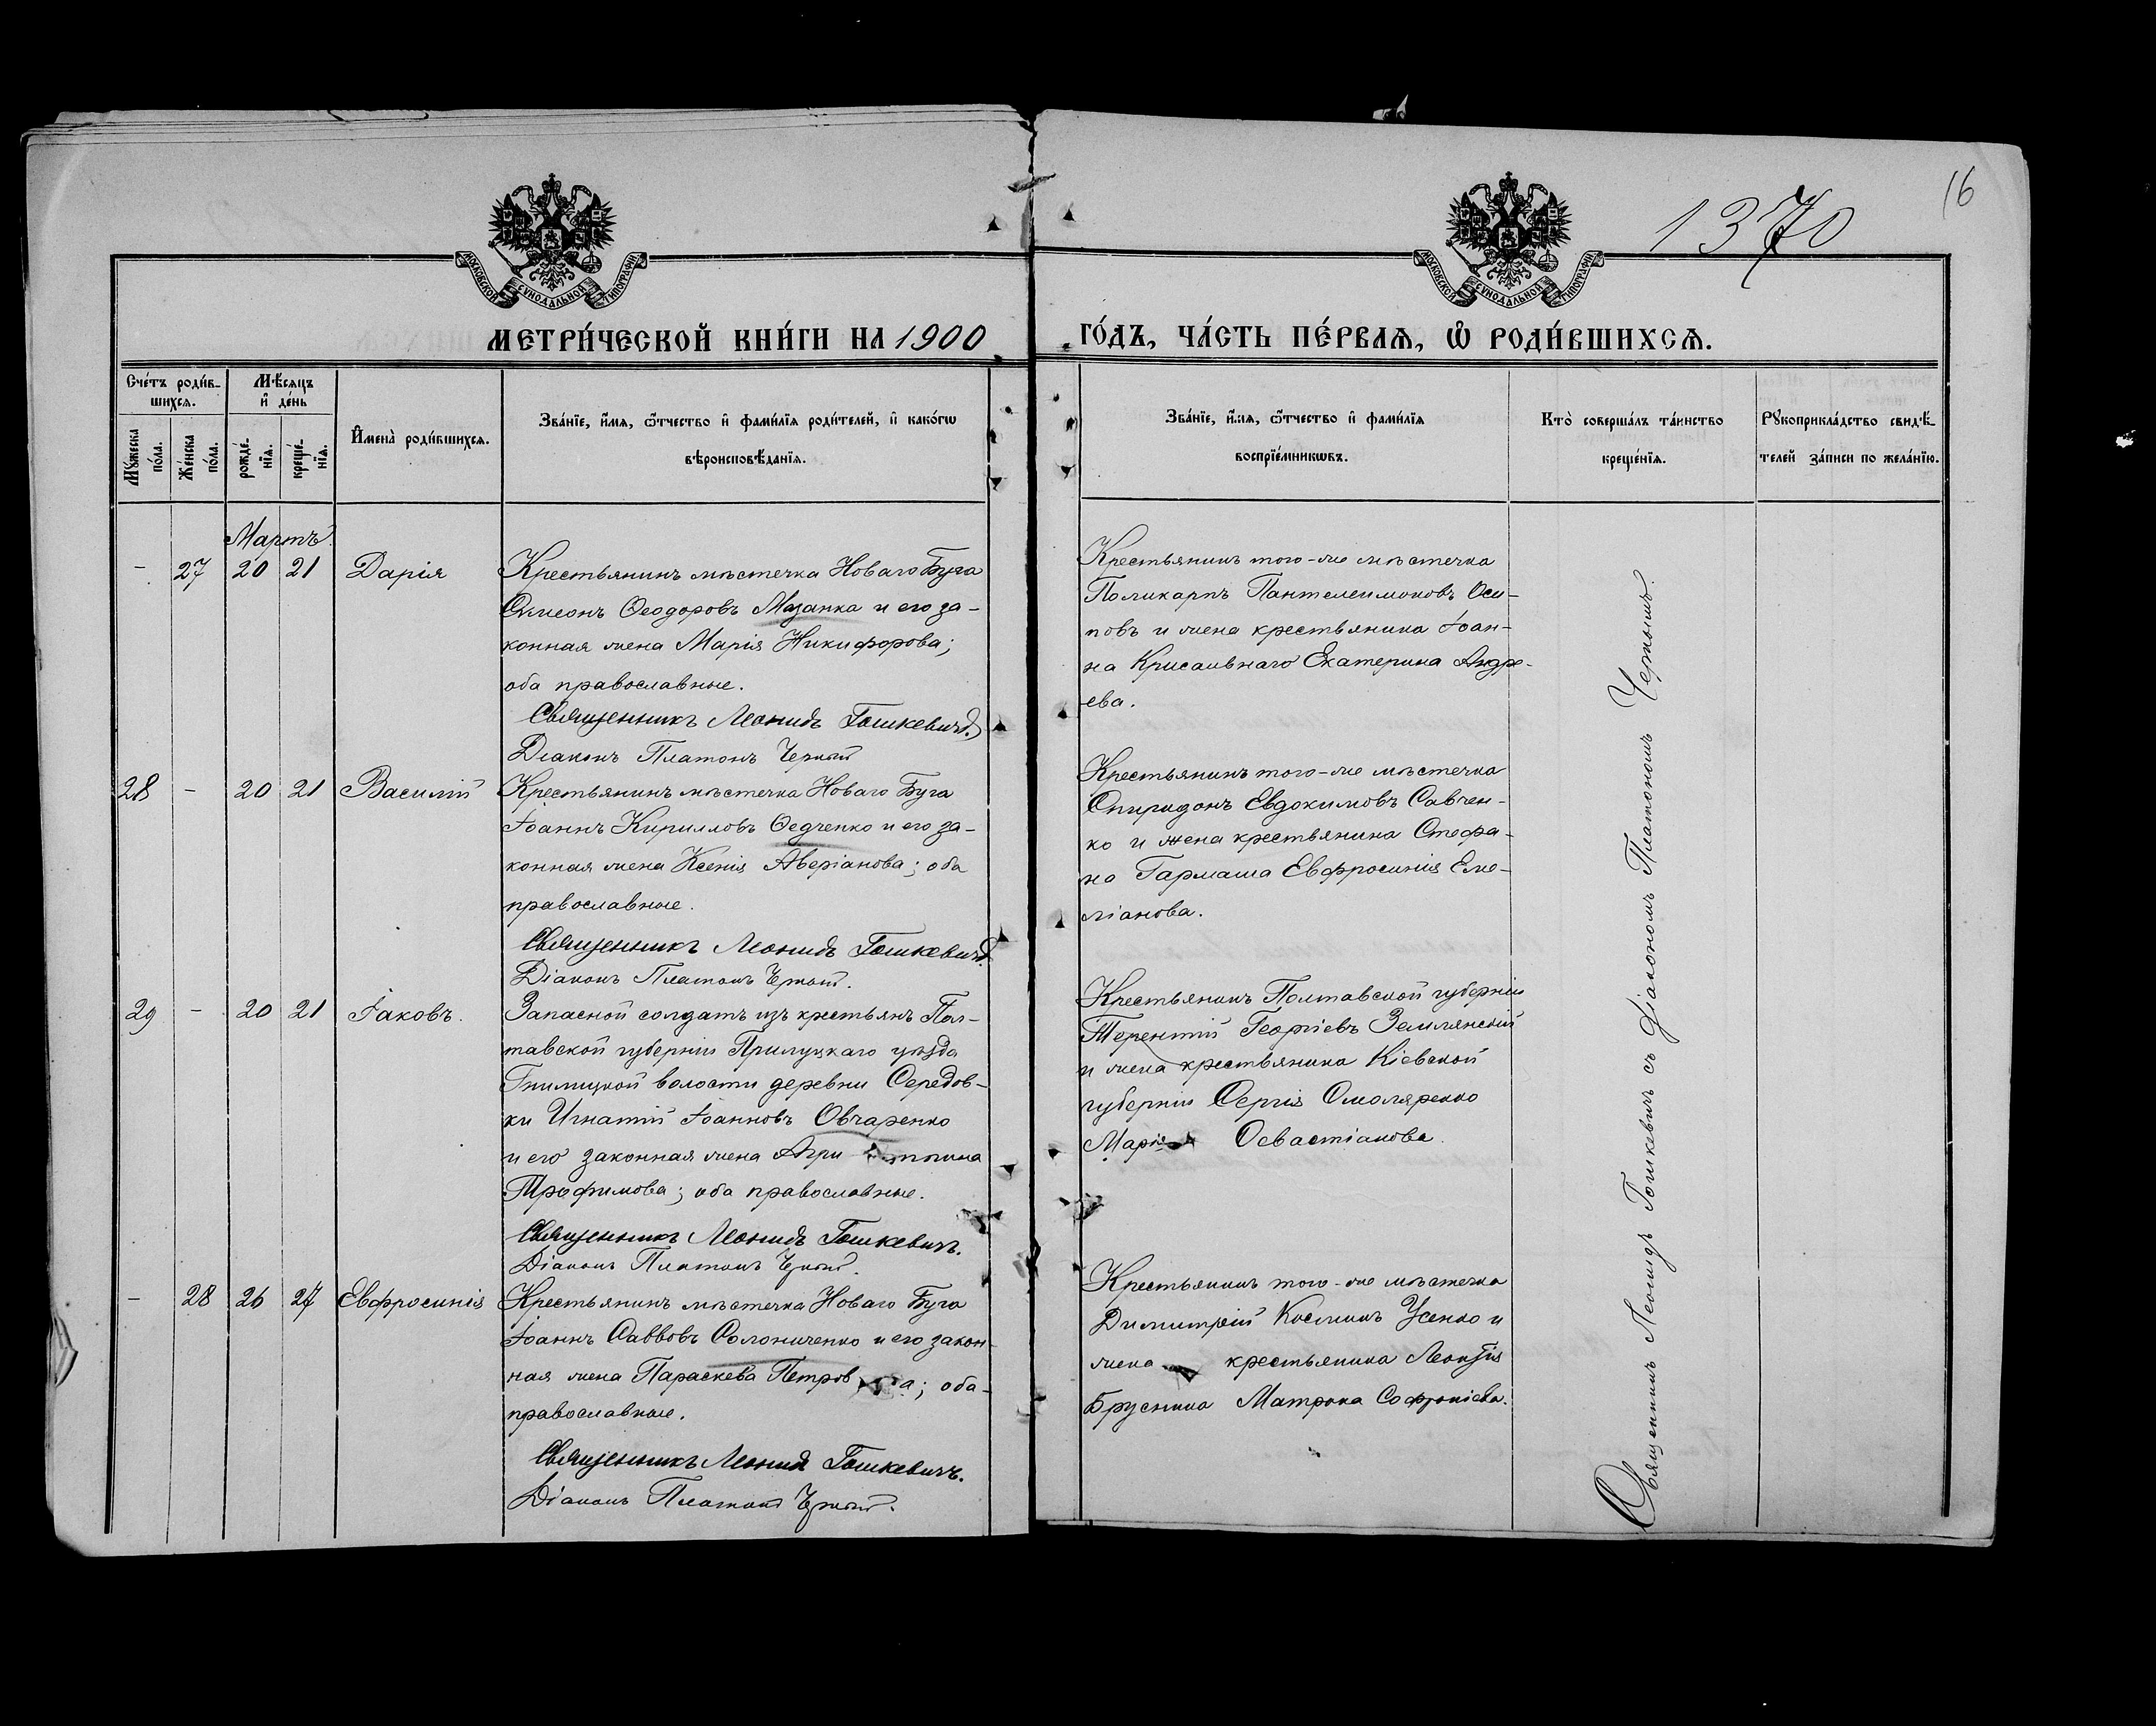 1370
16
МОСКОВСКОЙ СѴНОДАЛЬНОЙ ТИПОГРАФІИ
МОСКОВСКОЙ СѴНОДАЛЬНОЙ ТИПОГРАФІИ
МЕТРИ́ЧЕСКОЙ КНИ́ГИ НА 1900
ГО́ДЪ, ЧА́СТЬ ПЕ́РВАѦ, Ѡ҆ РОДИ́ВШИХСѦ.
Сче́тъ роди́в-
шихсѧ.
Мꙋ́жеска по́ла.
Же́нска по́ла.
Мѣ́сѧцъ
и҆ де́нь
рожде́-нїѧ.
креще́-нїѧ.
И҆мена̀ роди́вшихсѧ.
Зва́нїе, и҆́мѧ, ѻ҆́тчество и҆ фами́лїѧ роди́телей, и҆ како́гѡ
вѣроисповѣ́данїѧ.
Зва́нїе, и҆́мѧ, ѻ҆́тчество и҆ фами́лїѧ
воспрїе́мникѡвъ.
Кто̀ соверша́лъ та́инство
креще́нїѧ.
Рꙋкоприкла́дство свидѣ́-
телей за́писи по жела́нїю.
Мартъ
- 27 20 21 Дарія
Крестьянинъ мѣстечка Новаго Буга
Симеонъ Ѳеодоровъ Мазанка и его за-
конная жена Марія Никифорова;
оба православные.
Священникъ Леонидъ Гошкевичъ.
Діаконъ Платонъ Черный
Крестьянинъ того-же мѣстечка
Поликарпъ Пантелеимоновъ Оси-
повъ и жена крестьянина Іоан-
на Екатерина Андре-
ева.
28 - 20 21 Василій
Крестьянинъ мѣстечка Новаго Буга
Іоаннъ Кирилловъ Ѳедченко и его за-
конная жена Ксенія Аверіанова; оба
православные.
Священникъ Леонидъ Гошкевичъ.
Діаконъ Платонъ Черный.
Крестьянинъ того-же мѣстечка
Спиридонъ Евдокимовъ Савчен-
ко и жена крестьянина Стефа-
на Гармаша Евфросинія Еме-
ліанова.
29 - 20 21 Іаковъ.
Запасной солдатъ изъ крестьянъ Пол-
тавской губерніи Прилуцкаго уѣзда
Гнилицкой волости деревни Середов-
ки Игнатій Іоанновъ Овчаренко
и его законная жена Агри ппина
Трофимова; оба православные.
Священникъ Леонидъ Гошкевичъ.
Діаконъ Платонъ Черный.
Крестьянинъ Полтавской губерніи
Терентій Георгіевъ Землянскій
и жена крестьянина Кіевской
губерніи Сергія Смоляренко
Марія Севастіанова.
- 28 26 27 Евфросинія
Крестьянинъ мѣстечка Новаго Буга
Іоаннъ Саввовъ Солониченко и его закон-
ная жена Параскева Петрова; оба
православные.
Священникъ Леонидъ Гошкевичъ.
Діаконъ Платонъ Черный.
Крестьянинъ того-же мѣстечка
Димитрій Косминъ Усенко и
жена крестьянина Леонтія
Брусника Матрона Софроніева.
Священникъ Леонидъ Гошкевичъ съ діакономъ Платономъ Чернымъ.